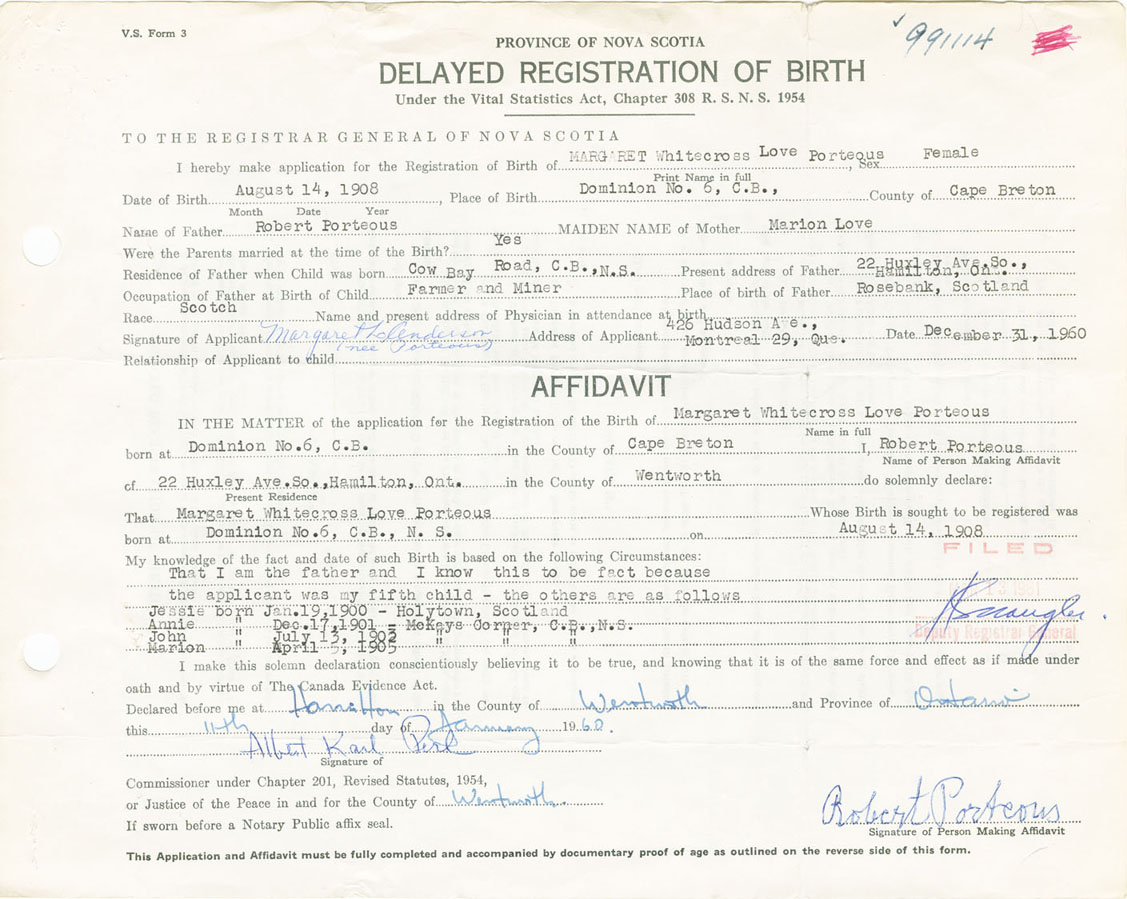 V.S. Form 3
991114
PROVINCE OF NOVA SCOTIA
DELAYED REGISTRATION OF BIRTH
Under the Vital Statistics Act, Chapter 308 R. S. N. S. 1954
TO THE REGISTRAR GENERAL OF NOVA SCOTIA
I hereby make application for the Registration of Birth of MARGARET Whitecross Love Porteous, Sex Female
Print Name in full
Date of Birth August 14, 1908, Place of Birth Dominion No. 6, C.B., County of Cape Breton
Month Date Year
Name of Father Robert Porteous MAIDEN NAME of Mother Marion Love
Were the Parents married at the time of the Birth? Yes
Residence of Father when Child was born Cow Bay Road, C.B.,N.S. Present address of Father 22 Huxley Ave.So., Hamilton, Ont.
Occupation of Father at Birth of Child Farmer and Miner Place of birth of Father Rosebank, Scotland
Race Scotch Name and present address of Physician in attendance at birth
Signature of Applicant Margaret Anderson (nee Porteous) Address of Applicant 426 Hudson Ave., Montreal 29, Que. Date December 31, 1960
Relationship of Applicant to child
AFFIDAVIT
IN THE MATTER of the application for the Registration of the Birth of Margaret Whitecross Love Porteous
Name in full
born at Dominion No.6, C.B. in the County of Cape Breton I, Robert Porteous
Name of Person Making Affidavit
of 22 Huxley Ave.So.,Hamilton, Ont. in the County of Wentworth do solemnly declare:
Present Residence
That Margaret Whitecross Love Porteous Whose Birth is sought to be registered was
born at Dominion No.6, C.B., N. S. on August 14, 1908
FILED
My knowledge of the fact and date of such Birth is based on the following Circumstances:
That I am the father and I know this to be fact because
the applicant was my fifth child - the others are as follows
Jessie born Jan.19,1900 - Holytown, Scotland
Annie " Dec.17,1901 - McKays Corner, C.B.,N.S.
John " July 13, 1903 " " "
Marion " April 5, 1905 " " "
Deputy Registrar General
I make this solemn declaration conscientiously believing it to be true, and knowing that it is of the same force and effect as if made under
oath and by virtue of The Canada Evidence Act.
Declared before me at Hamilton in the County of Wentworth and Province of Ontario
this 11th day of January 1960.
Albert Karl
Signature of
Commissioner under Chapter 201, Revised Statutes, 1954,
or Justice of the Peace in and for the County of Wentworth
If sworn before a Notary Public affix seal.
Robert Porteous
Signature of Person Making Affidavit
This Application and Affidavit must be fully completed and accompanied by documentary proof of age as outlined on the reverse side of this form.